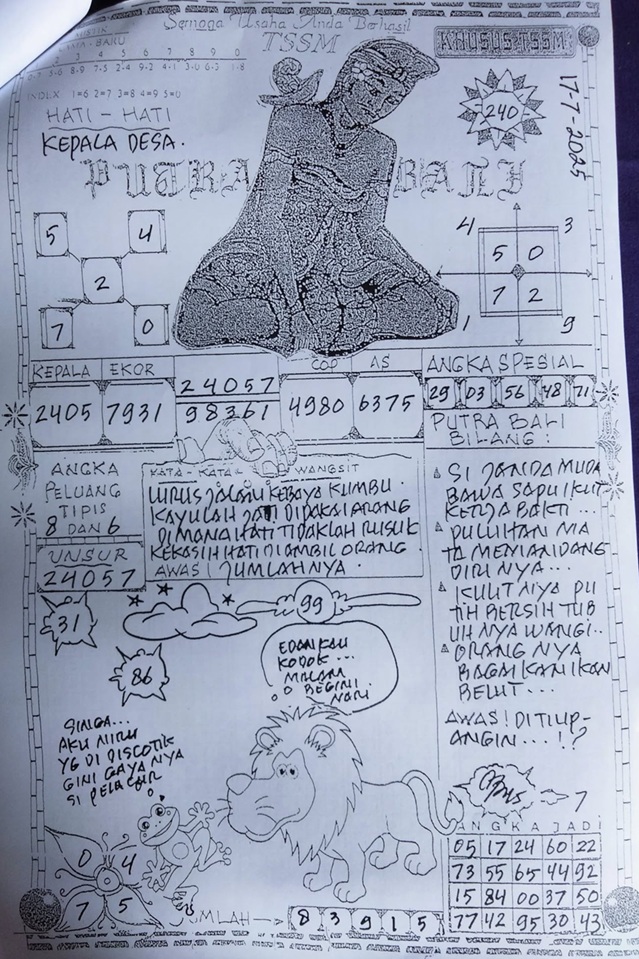 Semoga Usaha Anda Berhasil
TSSM
KHUSUS TSSM
MISTIK
BARU
3 4 5 6 7 8 9 0
5-8 8-9 7-5 2-4 9-2 4-1 3-0 6-3 1-8
INDEX 1=6 2=7 3=8 4=9 5=0
HATI - HATI
KEPALA DESA.
240
17-7-2025
PUTRA BALI
5 4
2
7 0
4 3
5 0
7 2
1 9
KEPALA EKOR
2405 7931
24057
98361
COP AS
4980 6375
ANGKA SPESIAL
29 03 56 48 71
PUTRA BALI
BILANG :
ANGKA
PELUANG
TIPIS
8 DAN 6
UNSUR
24057
KATA - KATA - WANGSIT
LURUS JALAN KEBAYA KUMBU
KAYULAH JATI DIPAKAI ARANG
DIMANA HATI TIDAKLAH RUSUK
KEKASIH HATI DIAMBIL ORANG
AWAS ! JUMLAHNYA .
SI JANDA MUDA
BAWA SAPU IKUT
KERJA BAKTI ...
PULUHAN MA
TA MEMANDANG
DIRI NYA ...
KULIT NYA PU
TIH BERSIH TUB
UH NYA WANGI ..
ORANG NYA
BAGAIKAN IKAN
BELUT ...
AWAS ! DITIUP-
ANGIN ... ! ?
31
86
99
EDAN KAU
KODOK ...
MALAM
BEGINI
NARI
SINGA ...
AKU NIRU
YG DI DISCOTIK
GINI GAYA NYA
7
ANGKA JADI
05 17 24 60 22
73 55 65 44 92
15 84 00 37 50
77 42 95 30 43
0 4
7 5
JUMLAH → 8 3 9 1 5